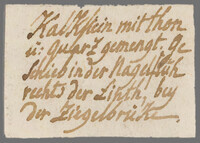 Kalkstein mit thon
u: quarz gemengt. Ge
schieb in der Nagelfluh
rechts der Linth. bey
der Ziegelbrüke.